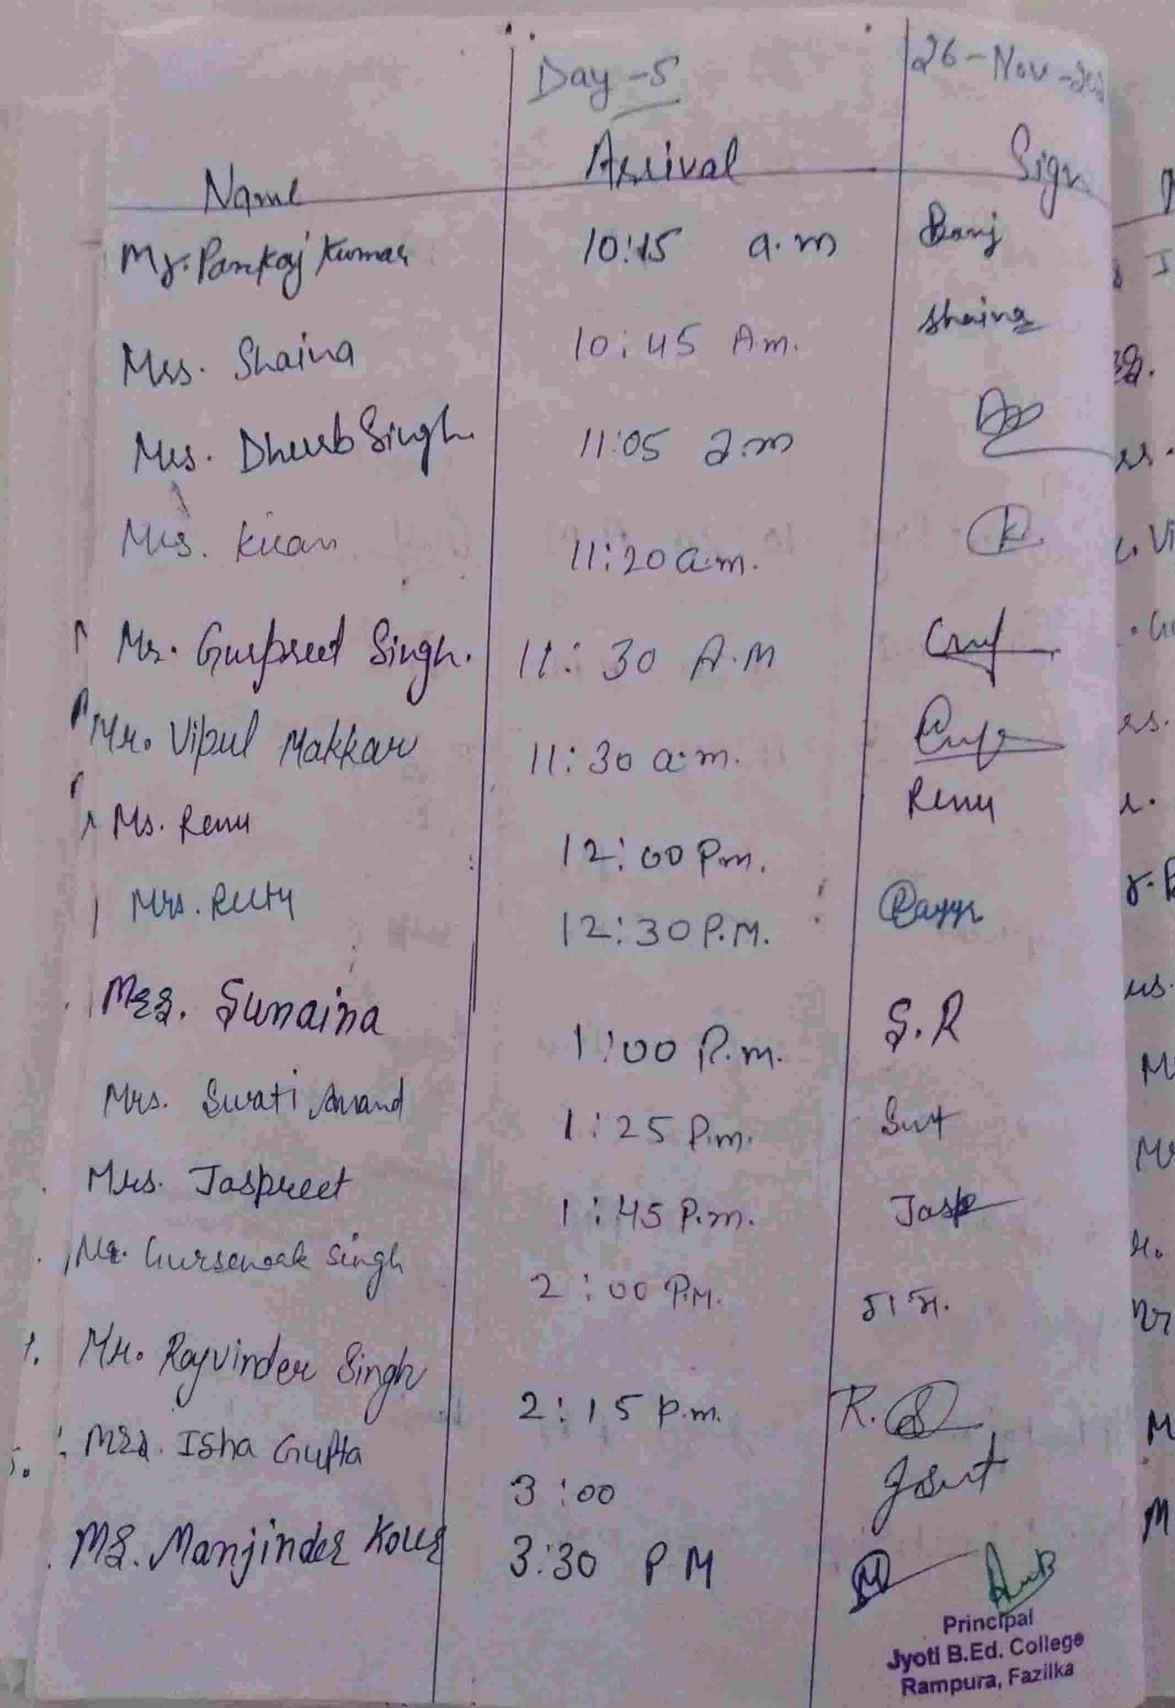 Day-5 26-Nov-202
Name Arrival Sign
Mr. Pankaj Kumar 10:15 a.m
Mrs. Shaina 10:45 A.m. Shaina
Mrs. Dhurb Singh 11:05 a.m
Mrs. Kiran 11:20 a.m. K.
Mr. Gurpreet Singh. 11:30 A.M
Mr. Vipul Makkar 11:30 a.m.
Ms. Renu 12:00 P.m. Renu
Mrs. 12:30 P.M.
Mrs. Sunaina 1:00 P.m. S.R
Mrs. Swati Anand 1:25 P.m.
Mrs. Jaspreet 1:45 P.m. Jasp
Mr. Gursewak Singh 2:00 P.M.
Mr. Rayvinder Singh 2:15 p.m. R.
Mrs. Isha Gupta 3:00
Ms. Manjinder Kour 3:30 PM
Principal
Jyoti B.Ed. College
Rampura, Fazilka